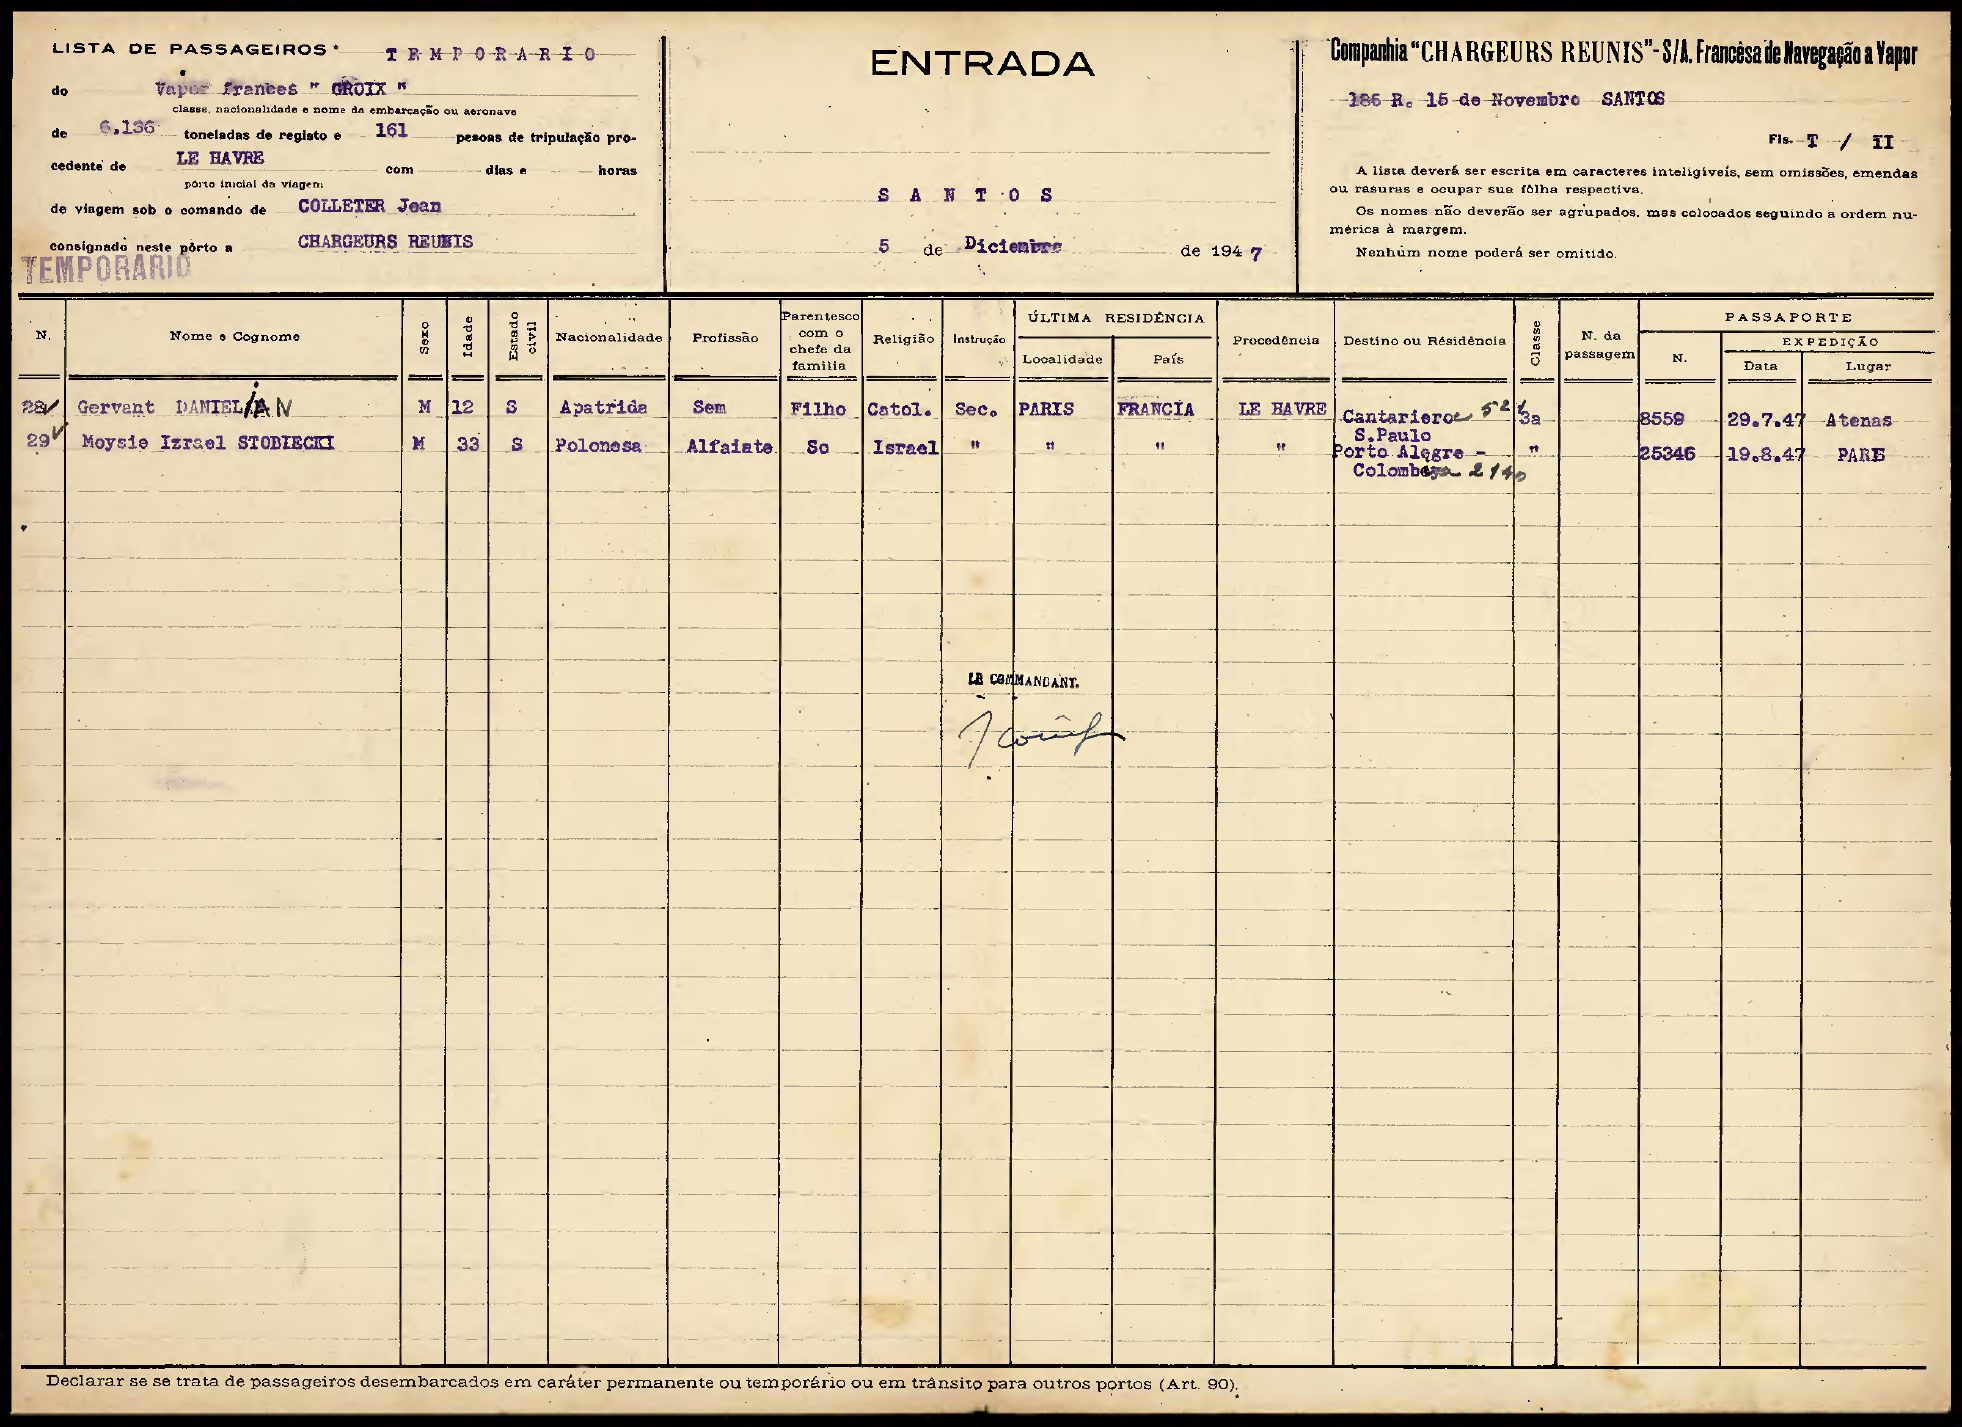 LISTA DE PASSAGEIROS TEMPORARIO
do Vapor frances " GROIX "
classe, nacionalidade e nome da embarcação ou aeronave
de 6,136 toneladas de registo e 161 pesoas de tripulação pro-
cedente de LE HAVRE com dias e horas
pôrto inicial da viagem
de viagem sob o comando de COLLETER Jean
consignado neste pôrto a CHARGEURS REUNIS
TEMPORARIO
ENTRADA
SANTOS
5 de Diciembre de 1947
Companhia "CHARGEURS REUNIS"-S/A. Francêsa de Navegação a Vapor
186 R. 15 de Novembro SANTOS
Fls. T / II
A lista deverá ser escrita em caracteres inteligíveis, sem omissões, emendas
ou rasuras e ocupar sua fôlha respectiva.
Os nomes não deverão ser agrupados, mas colocados seguindo a ordem nu-
mérica à margem.
Nenhúm nome poderá ser omitido.
N. Nome e Cognome Sexo Idade Estado civil Nacionalidade Profissão Parentesco com o chefe da família Religião Instrução ÚLTIMA RESIDÊNCIA Localidade País Procedência Destino ou Résidência Classe N. da passagem PASSAPORTE N. EXPEDIÇÃO Data Lugar
28 Gervant DANIELIAN M 12 S Apatrida Sem Filho Catol. Sec. PARIS FRANCIA LE HAVRE Cantariero 521 3a 8559 29.7.47 Atenas
S.Paulo
29 Moysie Izrael STODIECKI M 33 S Polonesa Alfaiate So Israel " " " " Porto Alegre - " 25346 19.8.47 PARE
Colombo 2140
LE COMMANDANT.
Declarar se se trata de passageiros desembarcados em caráter permanente ou temporário ou em trânsito para outros portos (Art. 90).